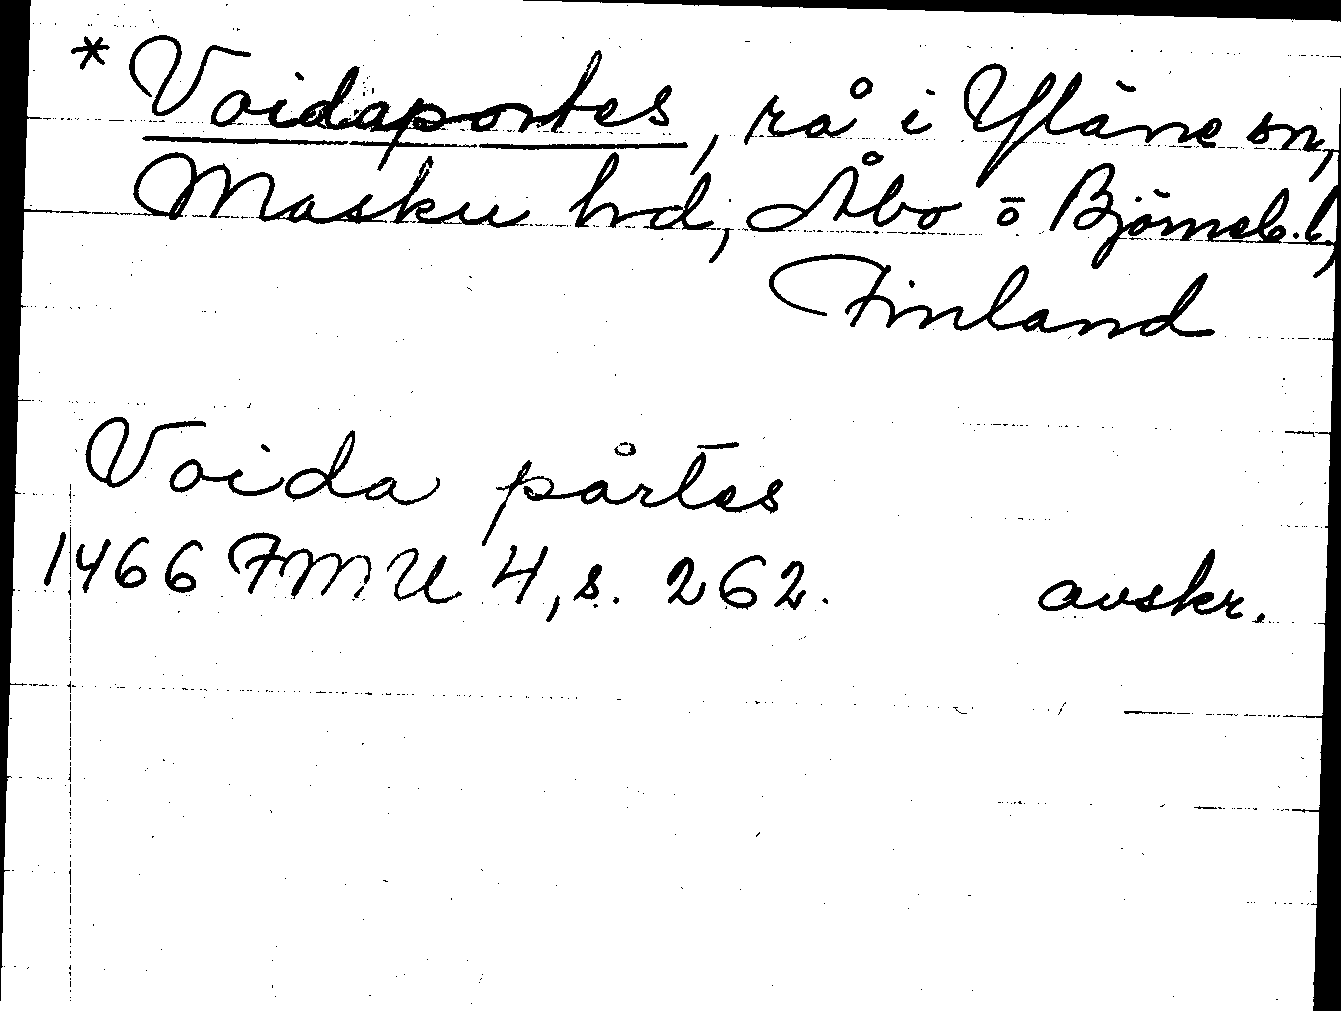 * Voidaportes, rå i Yläne sn,
Masku hd, Åbo o Björneb. l.,
Finland
Voida pårtes
1466 FMU 4, s. 262. avskr.